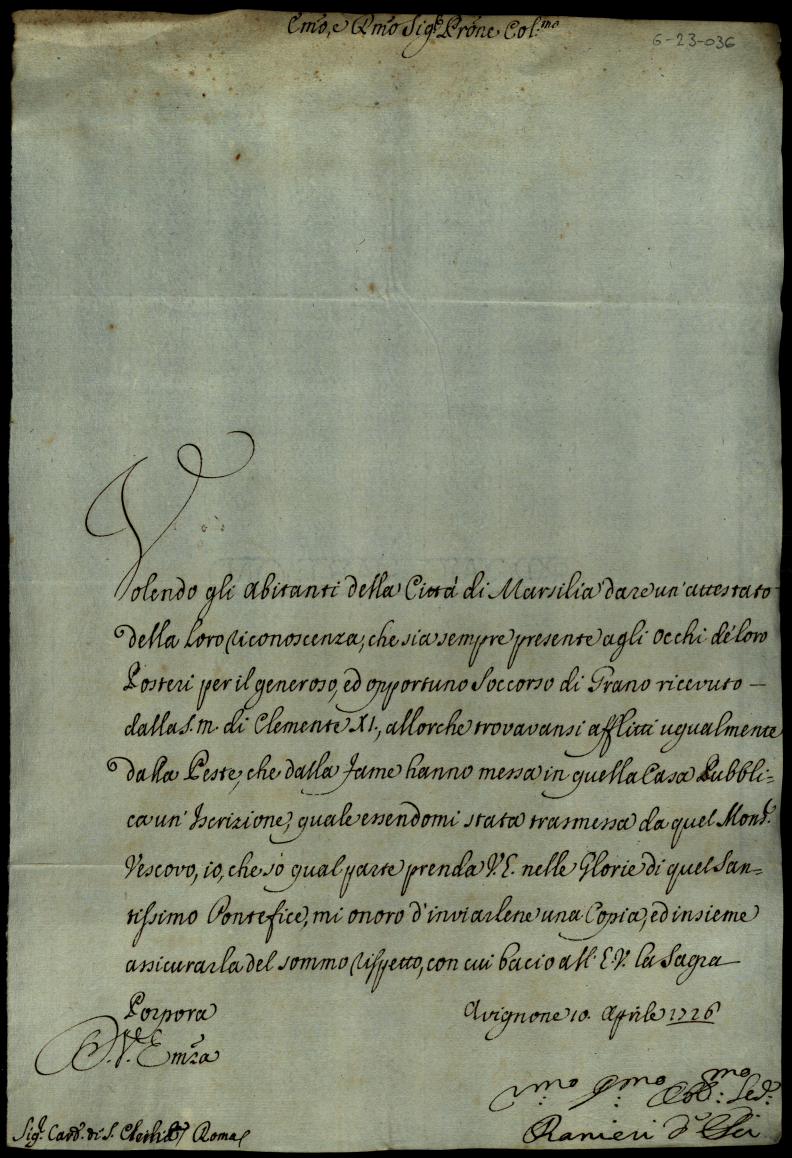 Emo, e Rmo Sig.r Prone Col.mo
6-23-036
Volendo gli abitanti della Città di Marsilia dare un' attestato
della loro riconoscenza, che sia sempre presente agli occhi de' loro
Posteri per il generoso, ed opportuno soccorso di Grano ricevuto —
dalla S. m. di Clemente XI., allorche trovavansi afflitti ugualmente
dalla Peste, che dalla fame hanno messa in quella Casa Pubbli=
ca un' Iscrizione, quale essendomi stata trasmessa da quel Mons.r
Vescovo, io, che sò qual parte prenda V.E. nelle Glorie di quel San=
tissimo Pontefice, mi onoro d'inviarlene una Copia, ed insieme
assicurarla del sommo rispetto, con cui bacio all' E.V. la Sagra
Porpora
Avignone 10. Aprile 1726
D. V. Emza
Sig.r Card. di S. Roma
Ranieri d' Elci